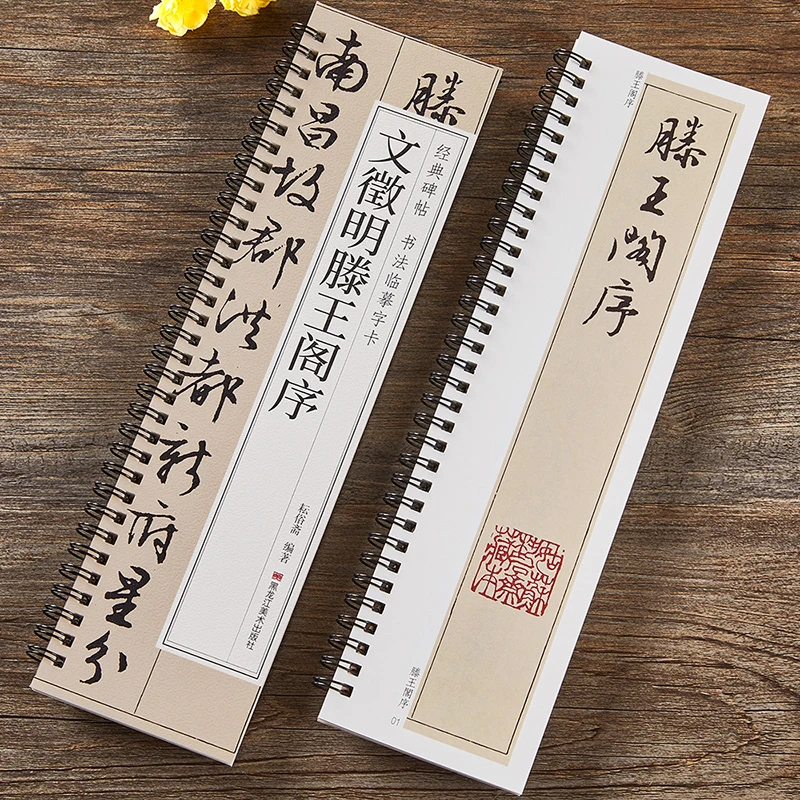 滕
南昌故郡洪都新府星分
经典碑帖 书法临摹字卡
文徵明滕王阁序
耘俗斋 编著
黑龙江美术出版社
滕王閣序
滕王閣序
滕王閣序
01